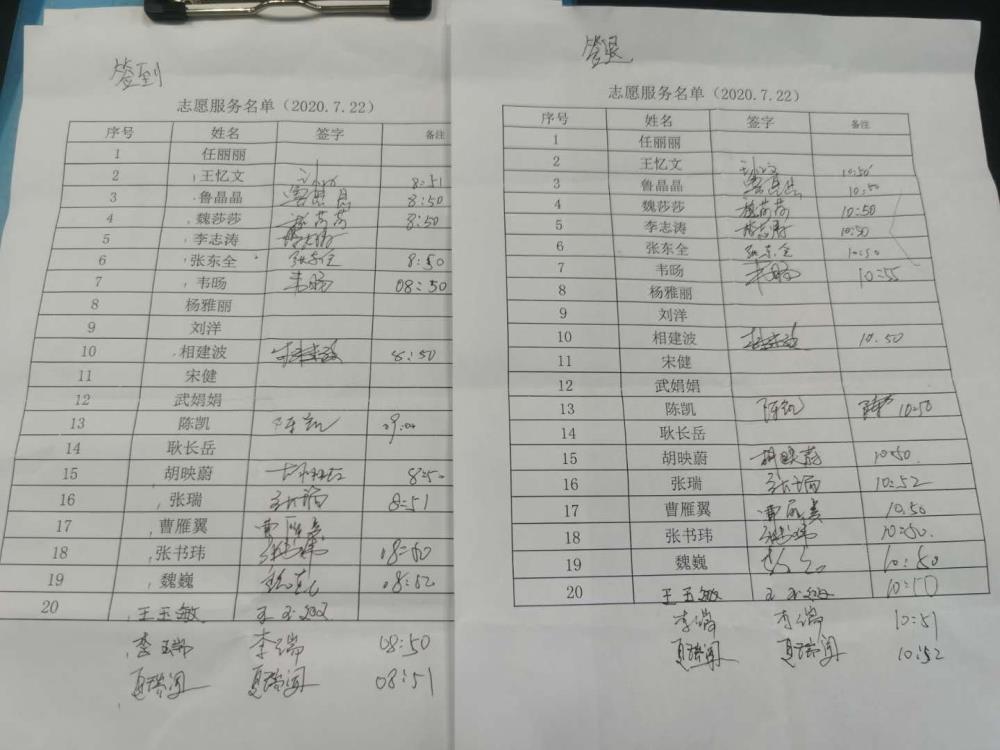 签到
志愿服务名单（2020.7.22）
序号 姓名 签字 备注
1 任丽丽
2 王忆文 8:51
3 鲁晶晶 鲁晶晶 8:50
4 魏莎莎 魏莎莎 8:50
5 李志涛 李志涛
6 张东全 张东全 8:50
7 韦旸 韦旸 08:50
8 杨雅丽
9 刘洋
10 相建波 相建波 8:50
11 宋健
12 武娟娟
13 陈凯 陈凯 09:00
14 耿长岳
15 胡映蔚 8:50
16 张瑞 张瑞 8:51
17 曹雁翼 曹雁翼
18 张书玮 张书玮 08:50
19 魏巍 魏巍 08:52
20 王玉敏 王玉敏
李瑞 李瑞 08:50
夏瑞闻 夏瑞闻 08:51
签退
志愿服务名单（2020.7.22）
序号 姓名 签字 备注
1 任丽丽
2 王忆文 10:50
3 鲁晶晶 鲁晶晶 10:50
4 魏莎莎 魏莎莎 10:50
5 李志涛 李志涛 10:50
6 张东全 张东全 10:50
7 韦旸 韦旸 10:55
8 杨雅丽
9 刘洋
10 相建波 相建波 10:50
11 宋健
12 武娟娟
13 陈凯 陈凯 10:50
14 耿长岳
15 胡映蔚 胡映蔚 10:50
16 张瑞 张瑞 10:52
17 曹雁翼 曹雁翼 10:50
18 张书玮 张书玮 10:50
19 魏巍 10:50
20 王玉敏 王玉敏 10:50
李瑞 李瑞 10:51
夏瑞闻 夏瑞闻 10:52